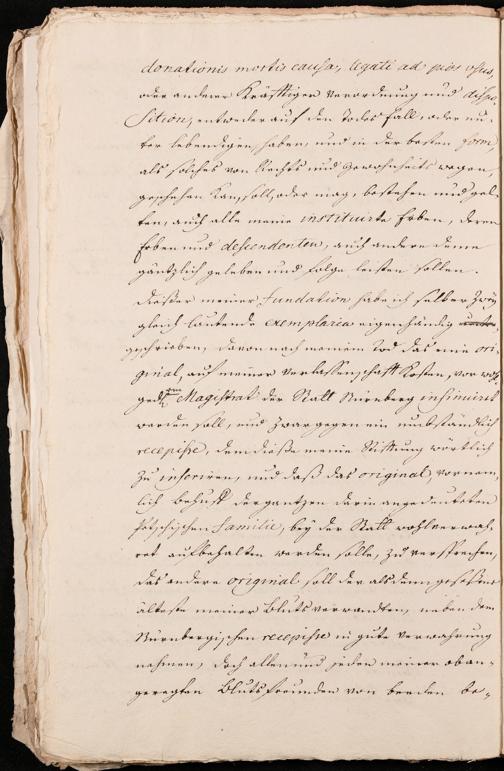 donationis mortis causa, legati ad pios usus,
oder anderer Kräfftigen Verordnung und dispo-
sition, entweder auf den Todes fall, oder un-
ter lebendigen, haben, und in der besten form,
als solches von Rechts und Gewohnheits wegen,
geschehen kan, soll, oder mag, bestehen und gel-
ten, auch alle meine instituirte Erben, deren
Erben und descendenten, auch andere deme
gäntzlich geleben und folge leisten sollen.
Dießer meiner fundation habe ich selber zwey
gleich lautende exemplaria eigenhändig
geschrieben, davon nach meinem Tod das eine ori-
ginal, auf meiner Verlassenschafft Kosten, vor
Magistrat der Statt Nürnberg insinuirt
werden soll, und zwar gegen ein umbständlich
recepisse, dem dieße meine Stifftung wörtlich
zu inseriren, und daß das original, vornem-
lich behuff der gantzen darin angedeuteten
familie, bey der Statt wohlverwah-
ret aufbehalten werden solle, zu versprechen,
das andere original soll der alsdenn
älteste meiner Bluts verwandten, neben dem
Nürnbergischen recepisse in gute Verwahrung
nehmen, doch allen und jeden meinen oban-
geregten Blutsfreunden von beeden be-